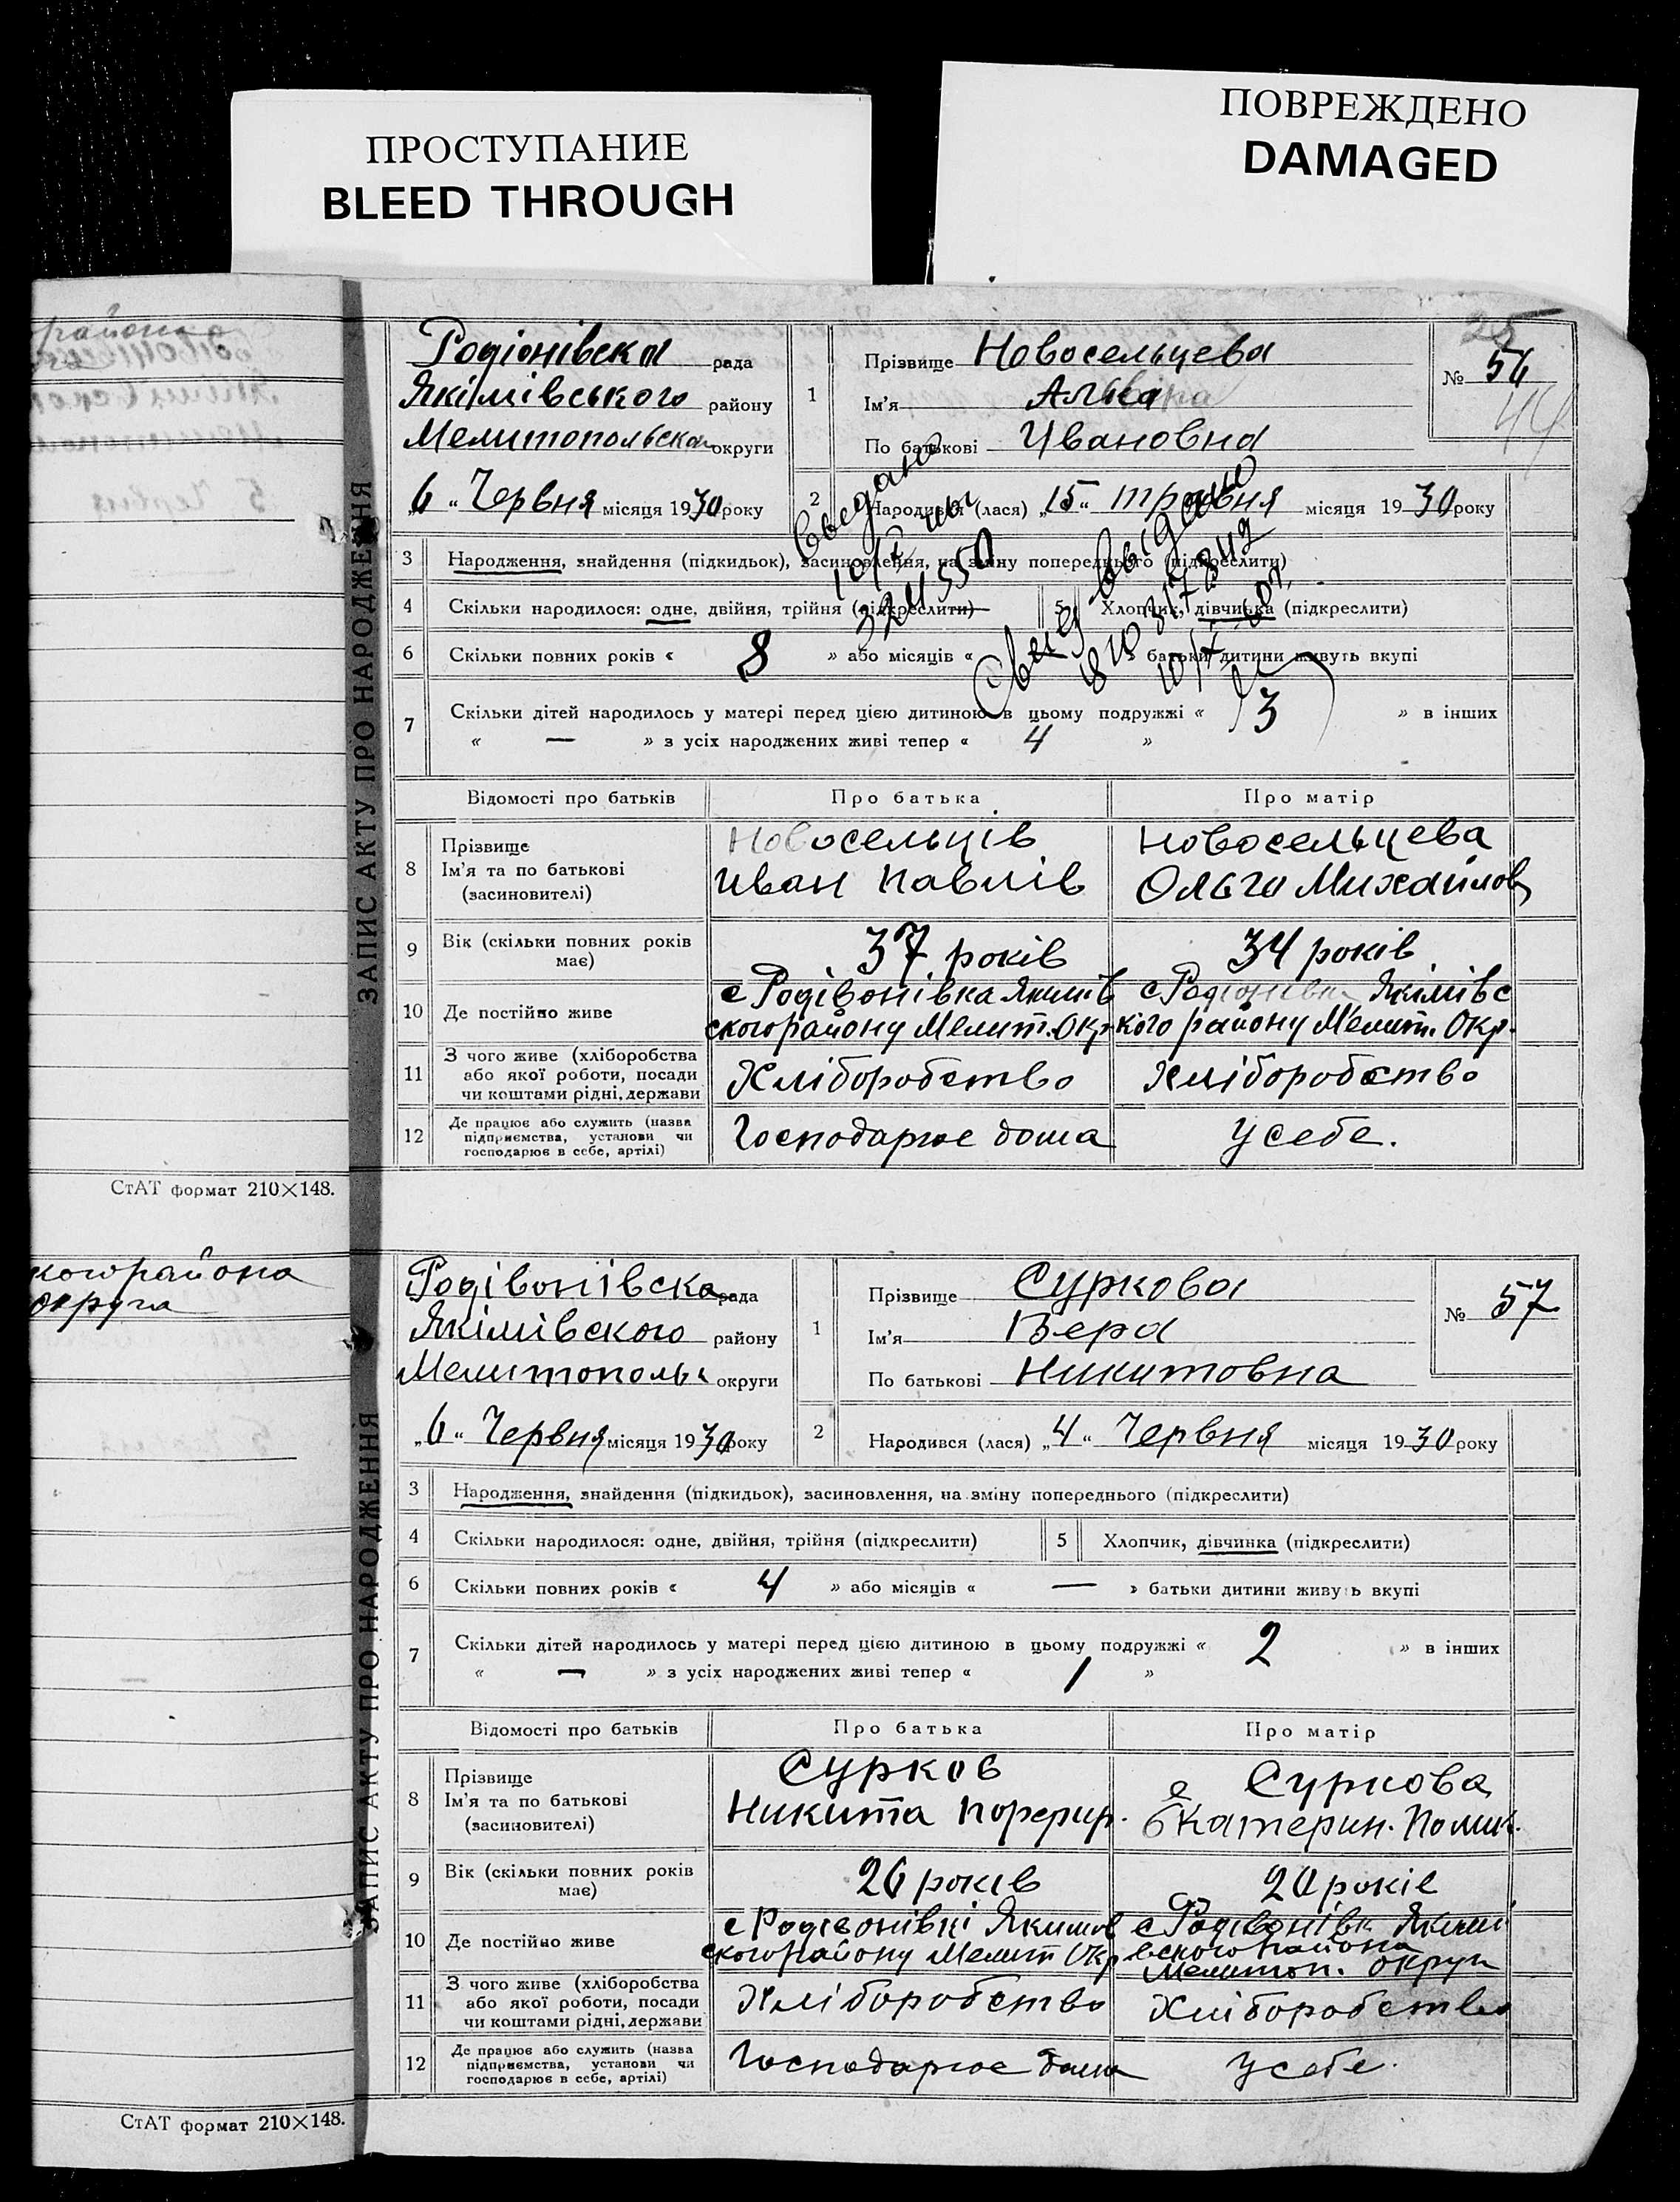 ПРОСТУПАНИЕ
BLEED THROUGH
ПОВРЕЖДЕНО
DAMAGED
района
25
ЗАПИС АКТУ ПРО НАРОДЖЕННЯ
Родіонівска рада
Якімівського району
Мелитопольскои округи
„6“ Червня місяця 1930 року
1 Прізвище Новосельцева
Ім'я
По батькові Ивановна
№ 56
44
2 Народився (лася) „15“ травня місяця 1930 року
3 Народження, знайдення (підкидьок), засиновлення, на зміну попереднього (підкреслити)
4 Скільки народилося: одне, двійня, трійня (підкреслити)
5 Хлопчик, дівчинка (підкреслити)
6 Скільки повних років « 8 » або місяців « » батьки дитини живуть вкупі
7 Скільки дітей народилось у матері перед цією дитиною в цьому подружжі « 3 » в інших
« — » з усіх народжених живі тепер « 4 »
Відомості про батьків Про батька Про матір
8 Прізвище
Ім'я та по батькові
(засиновителі)
Новосельців
Иван Павлів
Новосельцева
Ольга Михайлов
9 Вік (скільки повних років
має)
37 років
34 років
10 Де постійно живе
с Родівонівка Якимів
ского району Мелит. Окр.
с Родіонівк Якімівс
кого району Мелит. Окр.
11 З чого живе (хліборобства
або якої роботи, посади
чи коштами рідні, держави
Хліборобство
Хліборобство
12 Де працює або служить (назва
підприємства, установи чи
господарює в себе, артілі)
Господарює дома
У себе.
СтАТ формат 210×148.
кого района
округа
ЗАПИС АКТУ ПРО НАРОДЖЕННЯ
Родівонівска рада
Якімівского району
Мелитополь округи
„6“ Червня місяця 1930 року
1 Прізвище Суркова
Ім'я Вера
По батькові Никитовна
№ 57
2 Народився (лася) „4“ Червня місяця 1930 року
3 Народження, знайдення (підкидьок), засиновлення, на зміну попереднього (підкреслити)
4 Скільки народилося: одне, двійня, трійня (підкреслити)
5 Хлопчик, дівчинка (підкреслити)
6 Скільки повних років « 4 » або місяців « — » батьки дитини живуть вкупі
7 Скільки дітей народилось у матері перед цією дитиною в цьому подружжі « 2 » в інших
« — » з усіх народжених живі тепер « 1 »
Відомості про батьків Про батька Про матір
8 Прізвище
Ім'я та по батькові
(засиновителі)
Сурков
Никита Порфир.
Суркова
Екатерин.
9 Вік (скільки повних років
має)
26 років
років
10 Де постійно живе
с Родівонівкі Якимов
ского району Мелит Окр
с Родівонівк Якимі
вского района
Мелитоп. округи
11 З чого живе (хліборобства
або якої роботи, посади
чи коштами рідні, держави
Хліборобство
Хліборобство
12 Де працює або служить (назва
підприємства, установи чи
господарює в себе, артілі)
Господарює дома
У себе.
СтАТ формат 210×148.